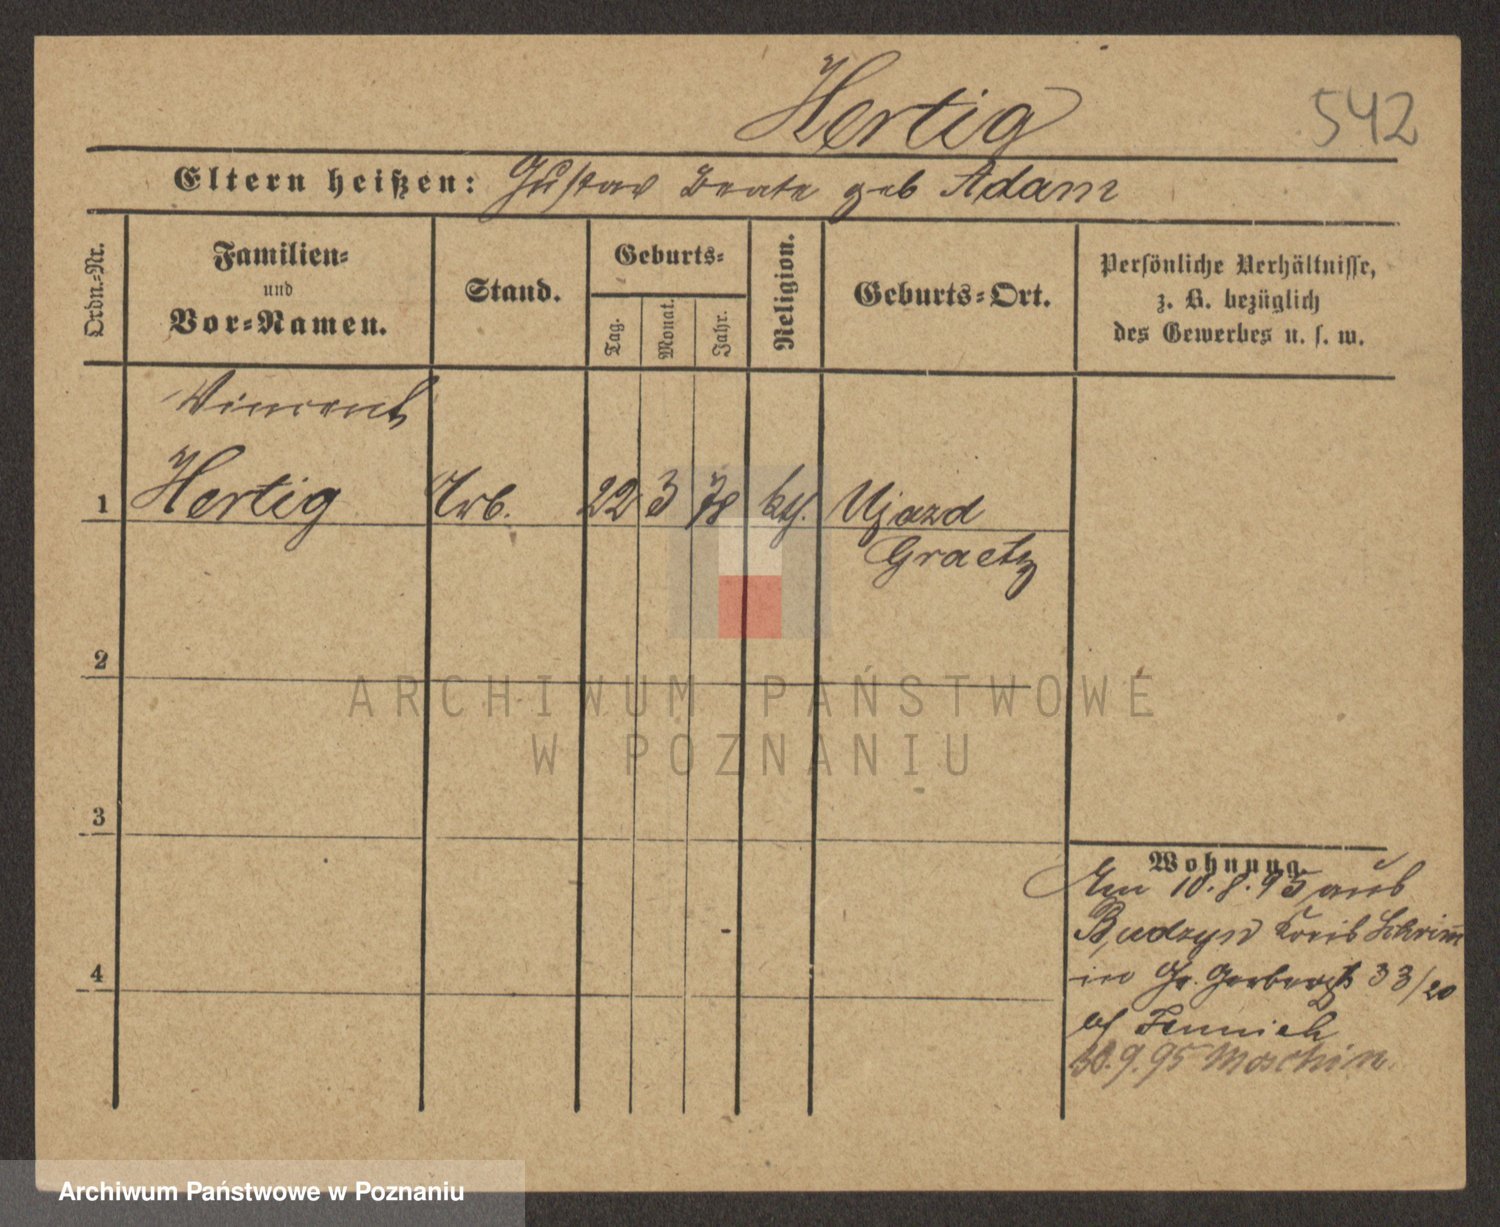 Hertig
542
Eltern heißen: Gustav Beate geb Adam
Ordn.-Nr.
Familien-
und
Vor-Namen.
Stand.
Geburts-
Tag.
Monat.
Jahr.
Religion.
Geburts-Ort.
Persönliche Verhältnisse,
z. B. bezüglich
des Gewerbes u. s. w.
Vincent
1 Hertig Arb. 22 3 78 kth. Ujazd
Graetz
2
3
4
Wohnung.
Am 10.8.95 aus
Budzyn Kreis Schrimm
in Gr. Gerberst 33/20
30.9.95 Moschin.
ARCHIWUM PAŃSTWOWE
W POZNANIU
Archiwum Państwowe w Poznaniu